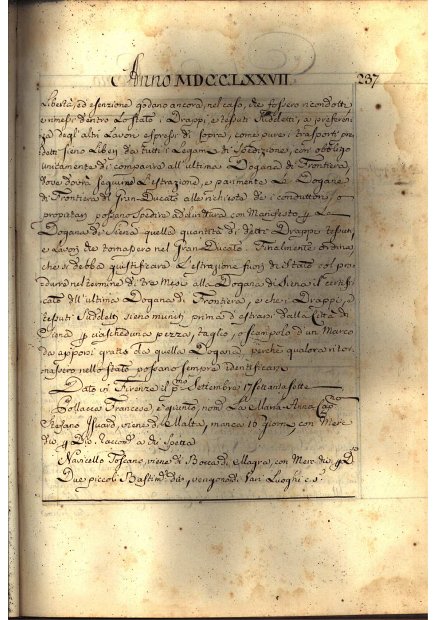 Anno MDCCLXXVII 237
Libertà, ed esenzione godano ancora, nel caso, che fossero ricondotti
e rimessi dentro Lo stato i Drappi, e tessuti Suddetti, a preferen
za degl'altri Lavori espressi di sopra, come pure i trasporti pre
detti sieno Liberi da tutti i Legami di Spedizione, con obbligo
unicamente di comparire all'ultima Dogana di Frontiera,
dove dovrà seguirne L'estrazione, e parimente Le Dogane
di Frontiera del Gran-Ducato alle richieste de i conduttori, o
proprietarj possano Spedire a dirittura con Manifesto p La
Dogana di Siena quella quantità di detti Drappi tessuti,
e Lavori che tornassero nel Gran Ducato. Finalmente ordina,
che si debba giustificare L'estrazione fuori di stato col pro
durre nel termine di tre Mesi alla Dogana di Siena il certifi
cato dell'ultima Dogana di Frontiera, e che i Drappi, e
tessuti Suddetti sieno muniti prima d'estrarsi dalla Città di
Siena p ciascheduna pezza, taglio, o scampolo d'un Marco
da apporsi gratis da quella Dogana, perchè qualora ritor
nassero nello stato possano sempre identificarsi
Dato in Firenze il p.mo Settembre 17settantasette
Pollacca Francese, e quinto, nom. La Maria Anna Cap.no
Stefano Isuard, viene di Malta, manca 10 Giorni, con Merc
zie, p Div. raccom. a di Spetta
Navicello Toscano, viene di Bocca di Magra, con Merc die p D
Due piccoli Bastim. da, vengono di Vari Luoghi e s